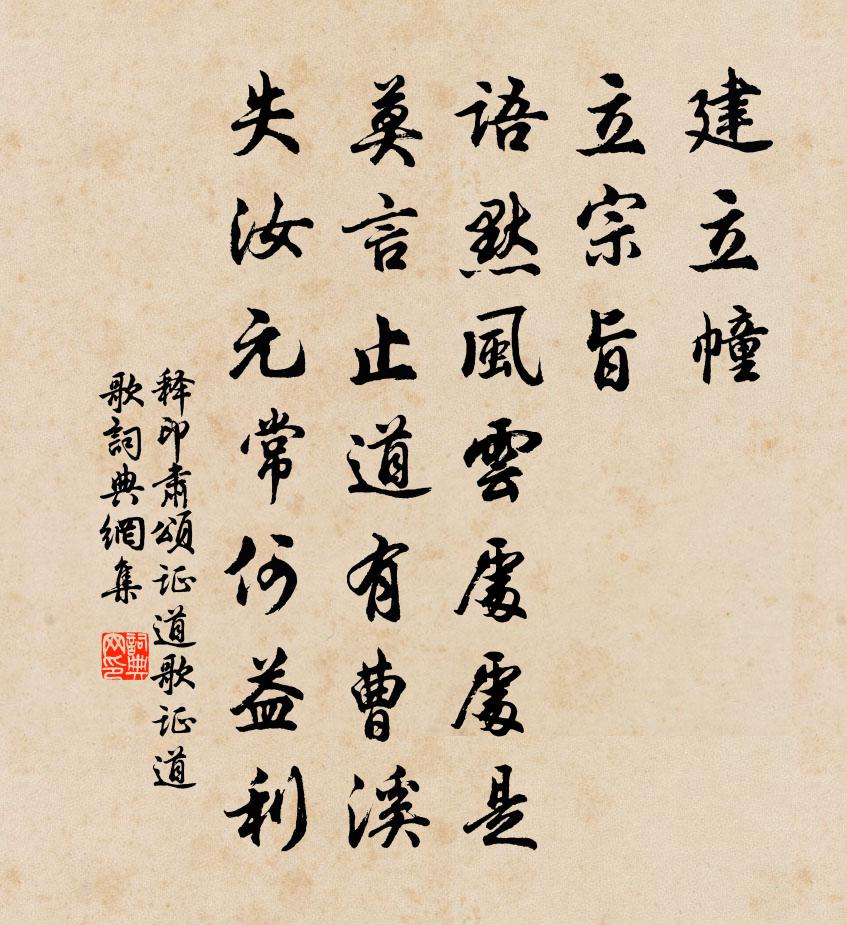 建立幢
立宗旨
語默風雲處處是
莫言止道有曹溪
失汝元常何益利
释印肃頌证道歌证道
歌詞典網集
詞典
网印